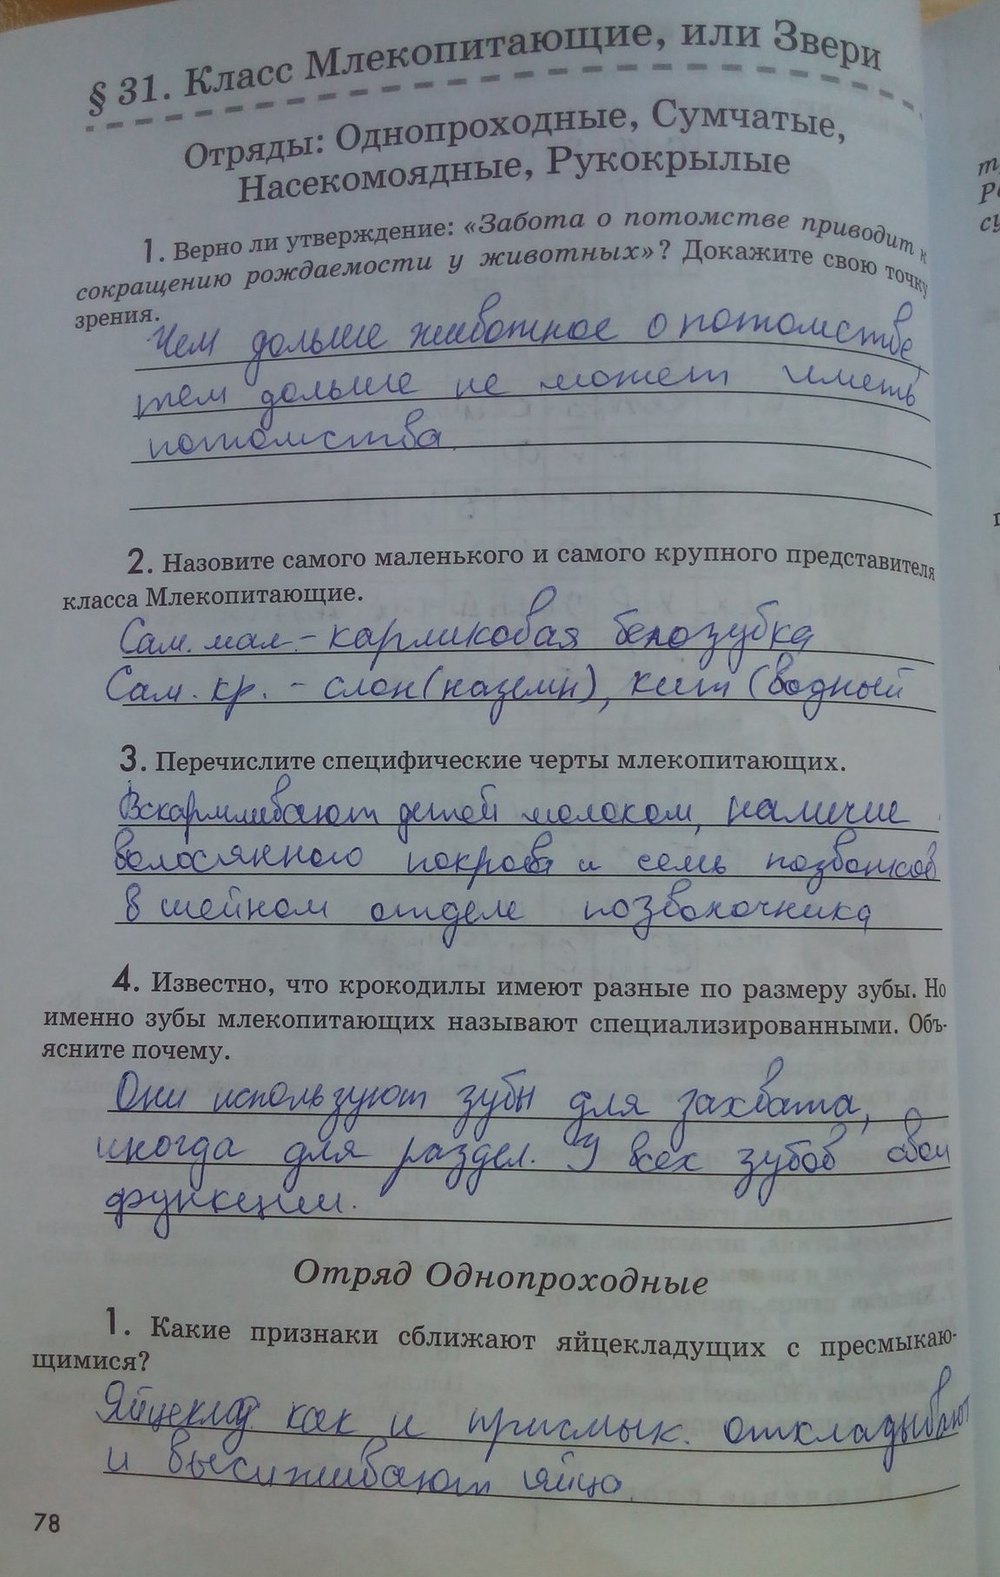 § 31. Класс Млекопитающие, или Звери
Отряды: Однопроходные, Сумчатые,
Насекомоядные, Рукокрылые
1. Верно ли утверждение: «Забота о потомстве приводит к
сокращению рождаемости у животных»? Докажите свою точку
зрения.
Чем дольше животное о потомстве,
тем дольше не может иметь
потомства.
2. Назовите самого маленького и самого крупного представителя
класса Млекопитающие.
Сам. мал. - карликовая белозубка
Сам. кр. - слон (наземн), кит (водный
3. Перечислите специфические черты млекопитающих.
Вскармливают детей молоком, наличие
волосянного покрова и семь позвонков
в шейном отделе позвоночника
4. Известно, что крокодилы имеют разные по размеру зубы. Но
именно зубы млекопитающих называют специализированными. Объ-
ясните почему.
Они используют зубы для захвата,
иногда для раздел. У всех зубов свои
функции.
Отряд Однопроходные
1. Какие признаки сближают яйцекладущих с пресмыкаю-
щимися?
Яйцеклад. как и присмык. откладывают
и высиживают яйца.
78
т
Р
су